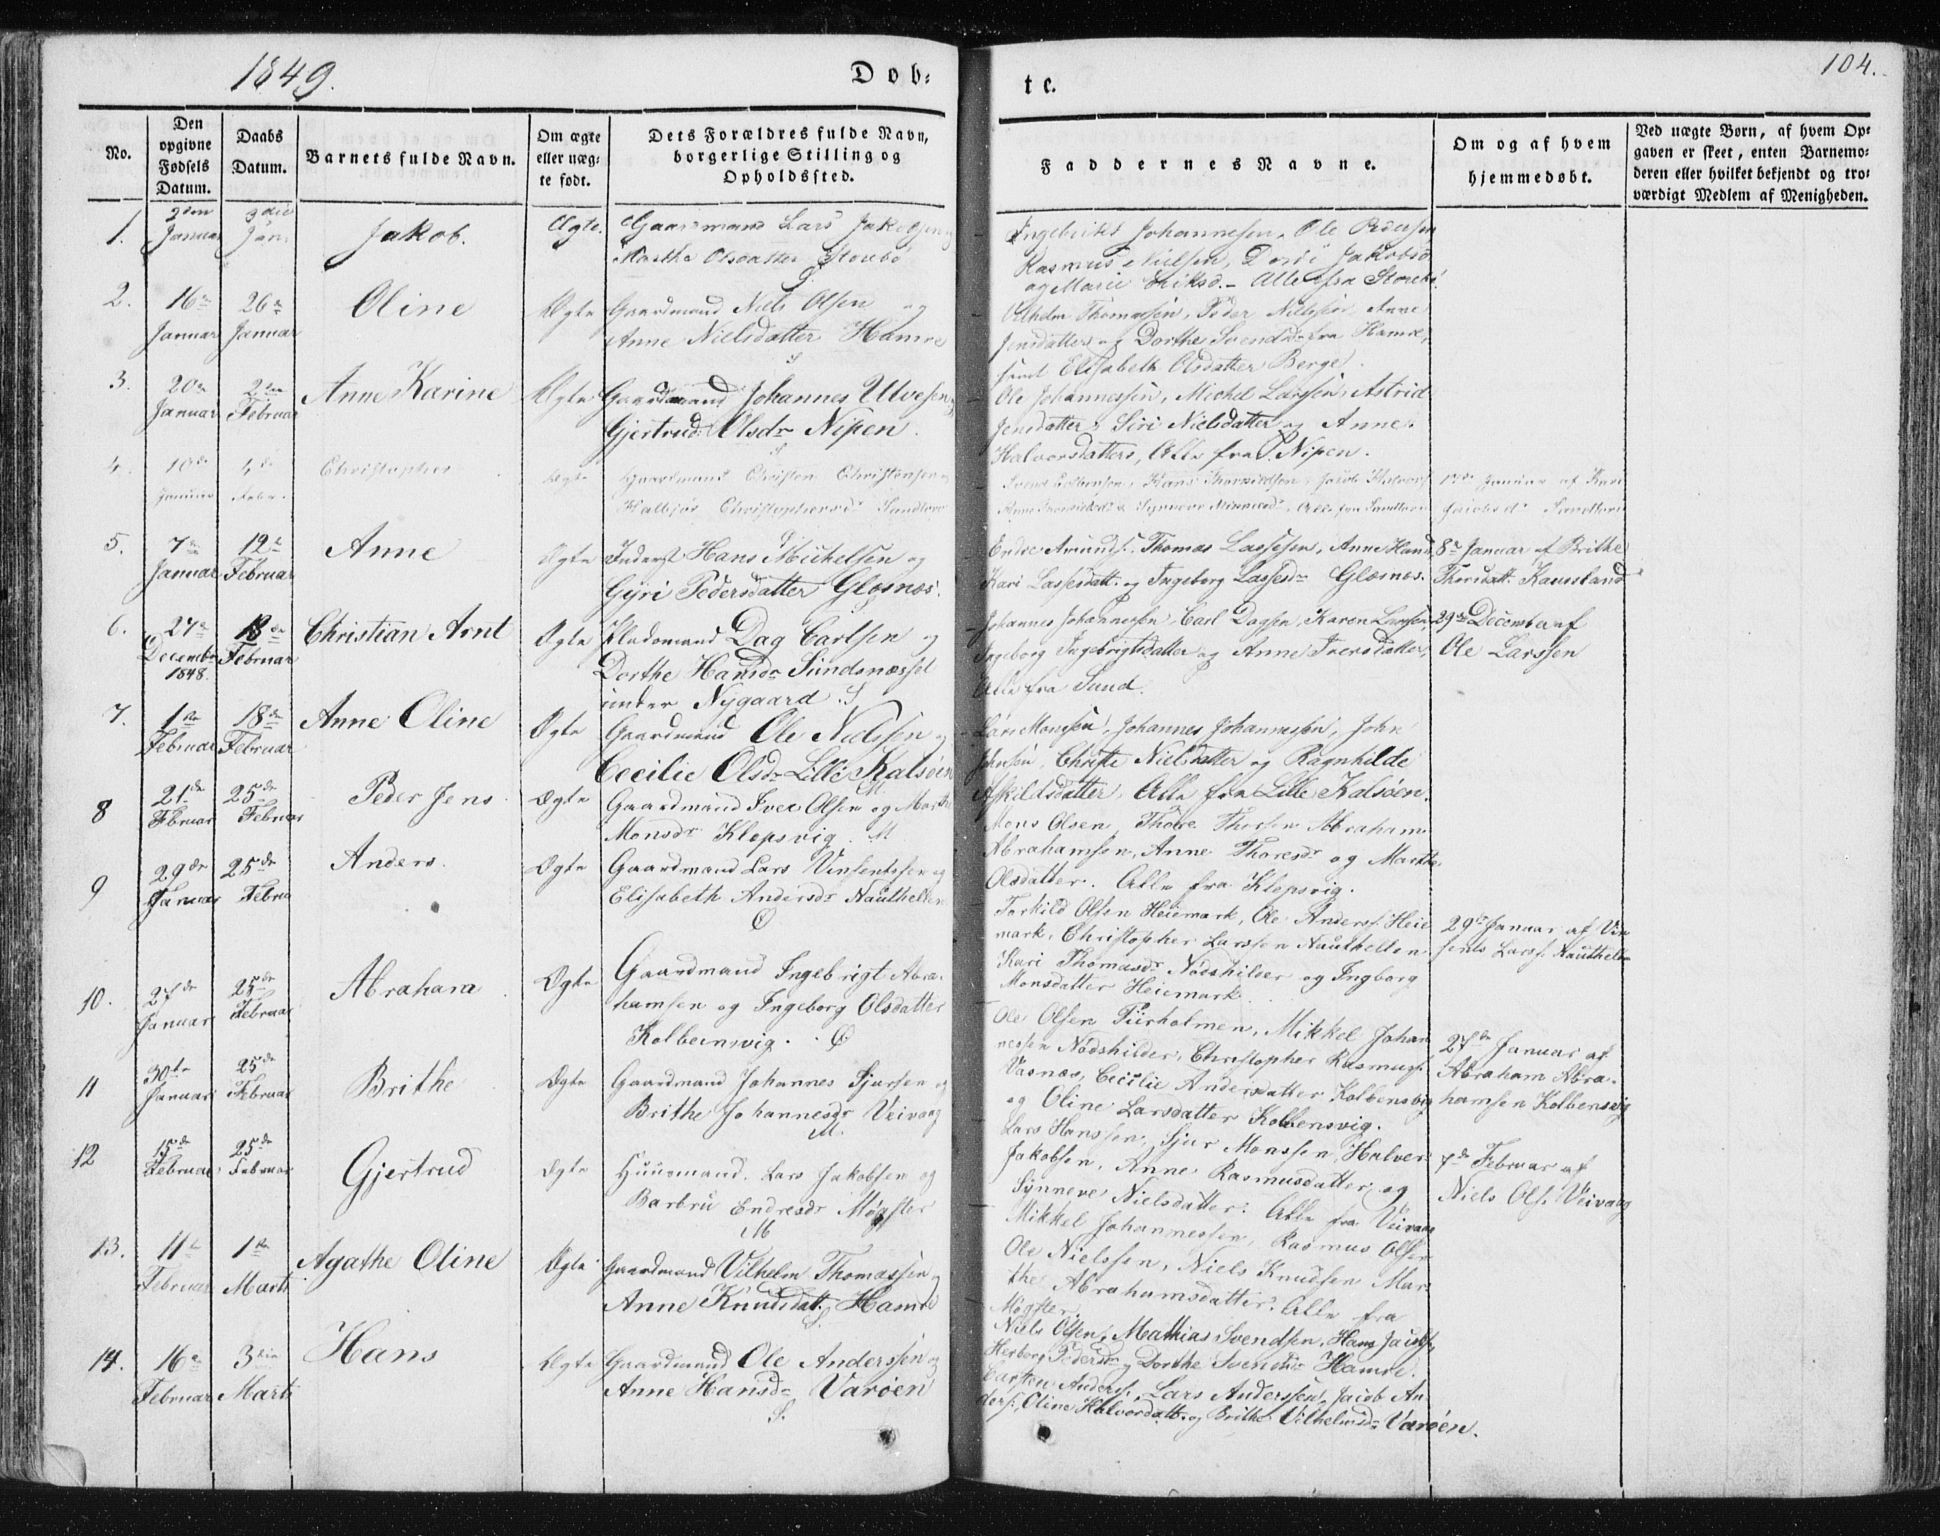 1849.
Døb:
te.
104.
No.
Den opgivne Fødsels Datum.
Daabs Datum.
Barnets fulde Navn.
Om ægte eller uæg: te født.
Dets Forældres fulde Navn, borgerlige Stilling og Opholdssted.
Faddernes Navne.
Om og af hvem hjemmedøbt.
Ved uægte Børn, af hvem Op: gaven er skeet, enten Barnemo: deren eller hvilket bekjendt og tro: værdigt Medlem af Menigheden.
1. Januar Jan. Jakob. Ægte. Gaardmand Lars
Marthe Olsdatter
Johannesen, Ole Pedersen
Rasmus Nielsen,
og Marie Eriksd. – Alle fra
2. 16de Januar 26de Januar Oline Ægte Gaardmand Niels Olsen og
Anne Nielsdatter Hamre
S
Vilhelm Thomassen, Peder Nielssen Anne
Jensdatter og Dorthe Svendsd. fra Hamre,
samt Elisabeth Olsdatter Berge.
3. 20de Januar 2den Februar Anne Karine Ægte Gaardmand Johannes Ulvesen og
Gjertrud Olsdr Nipen.
S
Ole Johannessen, Michel Larssen, Astrid
Jensdatter, Siri Nielsdatter og Anne
Halvorsdatter, Alle fra Nipen.
4. 10de Januar 4de Christopher Ægte Gaardmand Christen Christensen og
Christophersd.
Januar af Kari
Jacobsd.
5. 7de Januar 12te Februar Anne Ægte Inderst Hans Michelsen og
Gyri Pedersdatter Glesnæs.
Endre Amunds. Thomas Lassesen, Anne Hansd.
Kari Lassesdatt. og Ingeborg Lassesdr Glesnes.
8de Januar af Brithe
Thorsdatt. Kausland
6. 27de Decembr 1848. 18de Februar Christian Arnt Ægte Pladsmand Dag Carlsen og
Dorthe Hansdr Sundsnæsset
under Nygaard. S
Johannes Johannesen, Carl Dagsen, Karen Larsd.,
Ingeborg Ingebrigtsdatter og Anne Iversdatter,
Alle fra Sund.
29de December af
Ole Larssen
7. 1ste Februar 18de Februar Anne Oline Ægte Gaardmand Ole Nielssen og
Cecilie Olsdr Lille Kalsøen
M
Lars Monssen, Johannes Johannessen, John
Johnsen, Christe Nielsdatter og Ragnhilde
Askildsdatter, Alle fra Lille Kalsøen.
8 21de Februar 25de Februar Peder Jens Ægte Gaardmand Iver Olsen og Marthe
Monsdr Klepsvig. M
Mons Olsen, Thore Thorsen Abraham
Abrahamsen, Anne Thoresdr og Marthe
Olsdatter. Alle fra Klepsvig.
9 29de Januar 25de Februar Anders. Ægte Gaardmand Lars Vinsentssen og
Elisabeth Andersdr Nauthellen
Torkild Olsen Heiemark, Ole Anders. Heie
mark, Christopher Larssen Nauthellen
Kari Thomasdr Nødshilder og Ingborg
Monsdatter Heiemark.
29de Januar af Vin
sents Larss. Nauthellen
10. 27de Januar 25de Februar Abraham Ægte Gaardmand Ingebrigt Abra-
hamsen og Ingeborg Olsdatter
Kolbeinsvig.
Ole Olsen Tiirholmen, Mikkel Johan
nessen Nødshilder, Christopher Rasmus.
Vasnæs, Cecilie Andersdatter Kolbensvig
og Oline Larsdatter Kolbensvig.
27de Januar af
Abraham Abra-
hamsen Kolbensvig
11 30te Januar 25de Februar Brithe Ægte Gaardmand Johannes Sjursen og
Brithe Johannesdr Veivaag
M.
Lars Hanssen, Sjur Monssen, Halver
Jakobsen, Anne Rasmusdatter og
Synneve Nielsdatter. Alle fra Veivaag
7de Februar af
Niels Ols. Veivaag
12 15de Februar 25de Februar Gjertrud Ægte Huusmand. Lars Jakobsen og
Barbru Endresdr Møgster
M
Mikkel Johannessen, Rasmus Olsen
Ole Nielssen, Niels Knudsen Mar-
the Abrahamsdatter. Alle fra
Møgster
13. 11te Februar 1ste Marti Agathe Oline Ægte Gaardmand Vilhelm Thomassen og
Anne Knudsdatt. Hamre
S.
Niels Olsen, Mathias Svendsen, Hans
Herborg Pedersdr og Dorthe Svendsdr Hamre.
14. 16de Februar 3die Marti Hans Ægte Gaardmand Ole Anderssen og
Anne Hansdr Varøen
S.
Carsten Anders. Lars Anderssen, Jacob An
ders. Oline Halvorsdatt. og Brithe Vilhelmsdr Varøen.